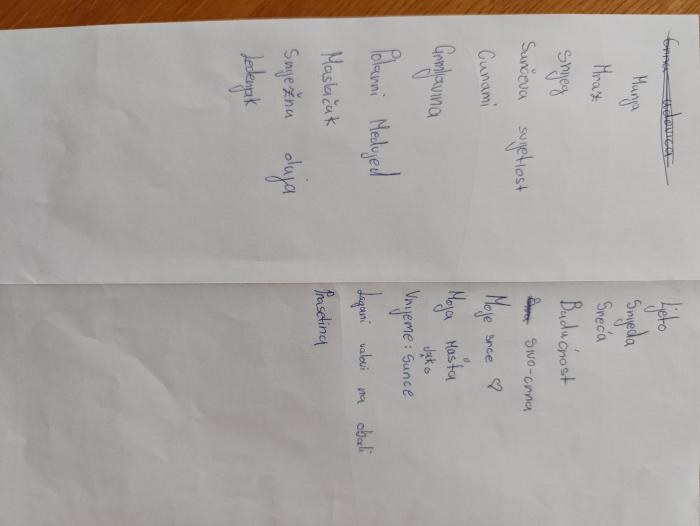 Crna udovica
Munja
Mraz
Snijeg
Sunčeva svijetlost
Cunami
Grmljavina
Polarni Medvjed
Maslačak
Snježna oluja
Ledenjak
Ljeto
Smjeđa
Sreća
Budućnost
sivo-crna
Moje srce ♡
Moja Mašta
Jako
Vrijeme: Sunce
Lagani valovi na obali
Prasetina